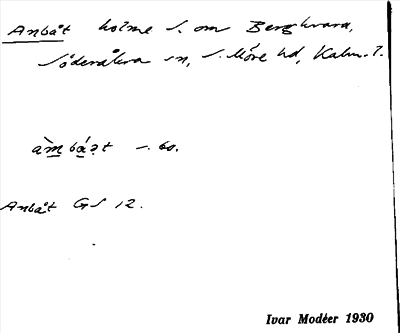 Anbåt holme S. om Bergkvara,
Söderåkra sn, S. Möre hd, Kalm. l.
Anbåt GS 12.
Ivar Modéer 1930